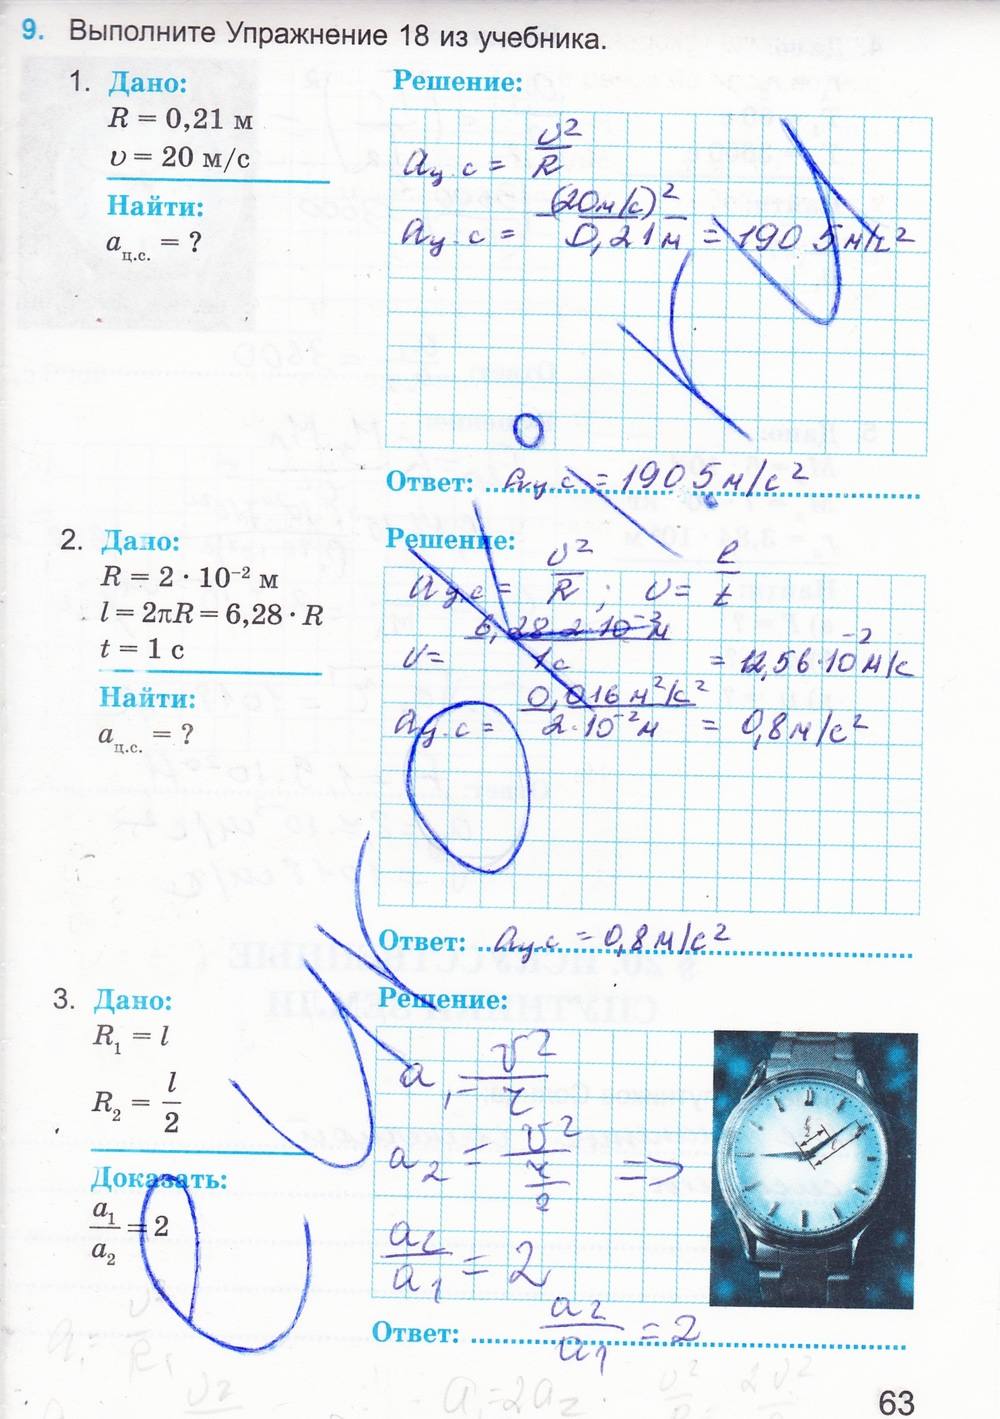 9. Выполните Упражнение 18 из учебника.
1. Дано:
R = 0,21 м
υ = 20 м/с
Найти:
aц.с. = ?
Решение:
aц.с = υ²/R
aц.с = (20м/с)²/0,21м = 1905м/с²
Ответ: aц.с = 1905м/с²
2. Дано:
R = 2 · 10⁻² м
l = 2πR = 6,28 · R
t = 1 с
Найти:
aц.с. = ?
Решение:
aц.с = υ²/R ; υ = l/t
υ = 6,28·2·10⁻²м/1с = 12,56·10⁻²м/с
aц.с = 0,016м²/с²/2·10⁻²м = 0,8м/с²
Ответ: aц.с = 0,8м/с²
3. Дано:
R₁ = l
R₂ = l/2
Доказать:
a₁/a₂ = 2
Решение:
a₁ = υ²/r
a₂ = υ²/(r/2) =>
a₂/a₁ = 2
Ответ: a₂/a₁ = 2
63